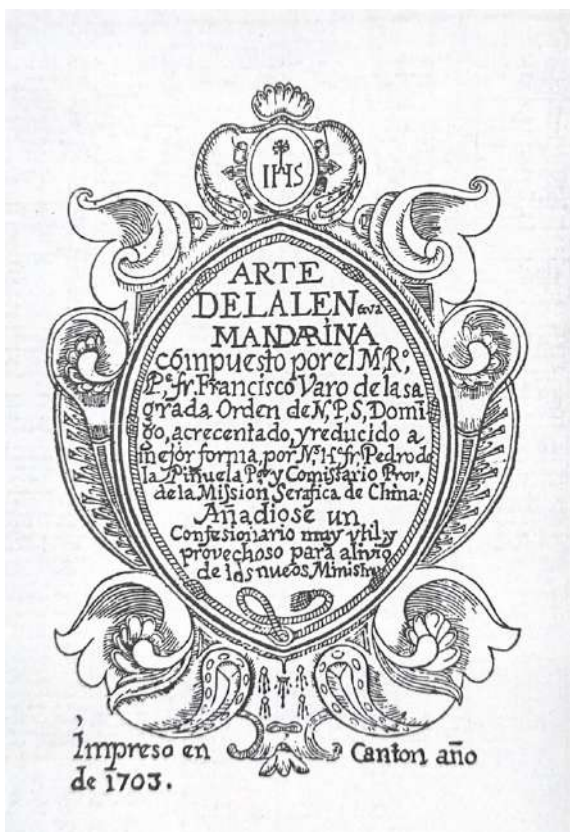 IHS
ARTE
DE LA LENgua
MANDARINA
compuesto por el M.Rº.
Pe. fr. Francisco Varo de la sa
grada Orden de N.P.S. Domi
go, acrecentado, y reducido a
mejor forma, por Nº. H. fr. Pedro de
la Piñuela Por. y Comissario Pror.
de la Mission Serafica de China.
Añadiose un
Confesionario muy vtil, y
provechoso para alivio
de los nueos Ministros
Impreso en Canton año
de 1703.